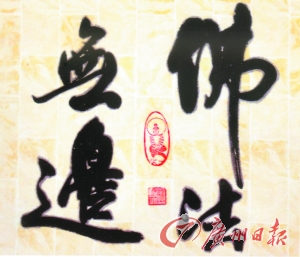 佛法
無邊
广州日报